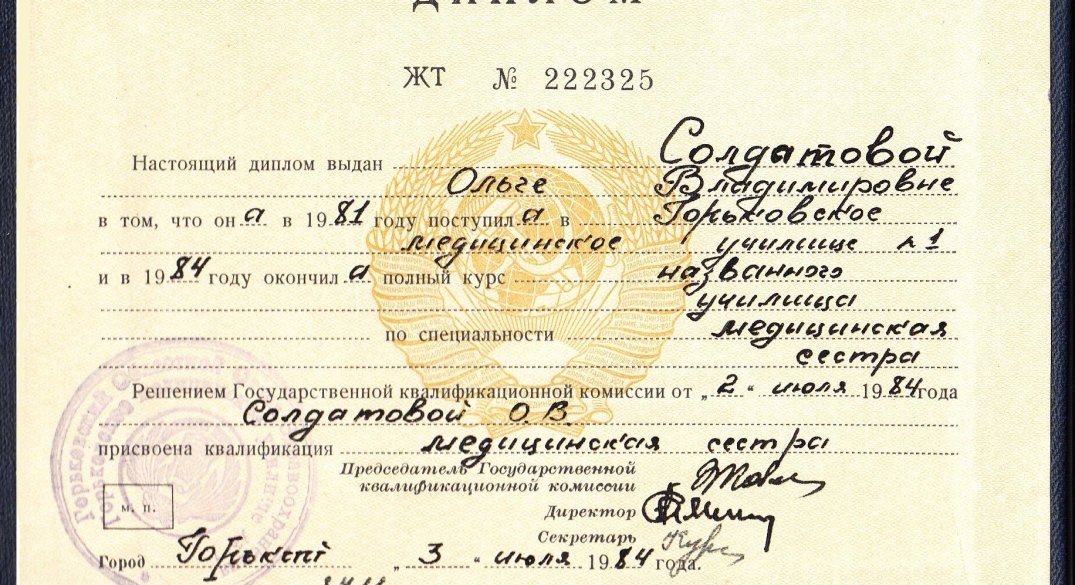 ДИПЛОМ
ЖТ № 222325
Настоящий диплом выдан Солдатовой
Ольге Владимировне
в том, что он а в 1981 году поступил а в Горьковское
медицинское училище №1
и в 1984 году окончил а полный курс названного
училища
по специальности медицинская
сестра
Решением Государственной квалификационной комиссии от „2“ июля 1984 года
Солдатовой О.В.
присвоена квалификация медицинская сестра
Председатель Государственной
квалификационной комиссии
м. п.
Директор
Секретарь
Город Горький „3“ июля 1984 года.